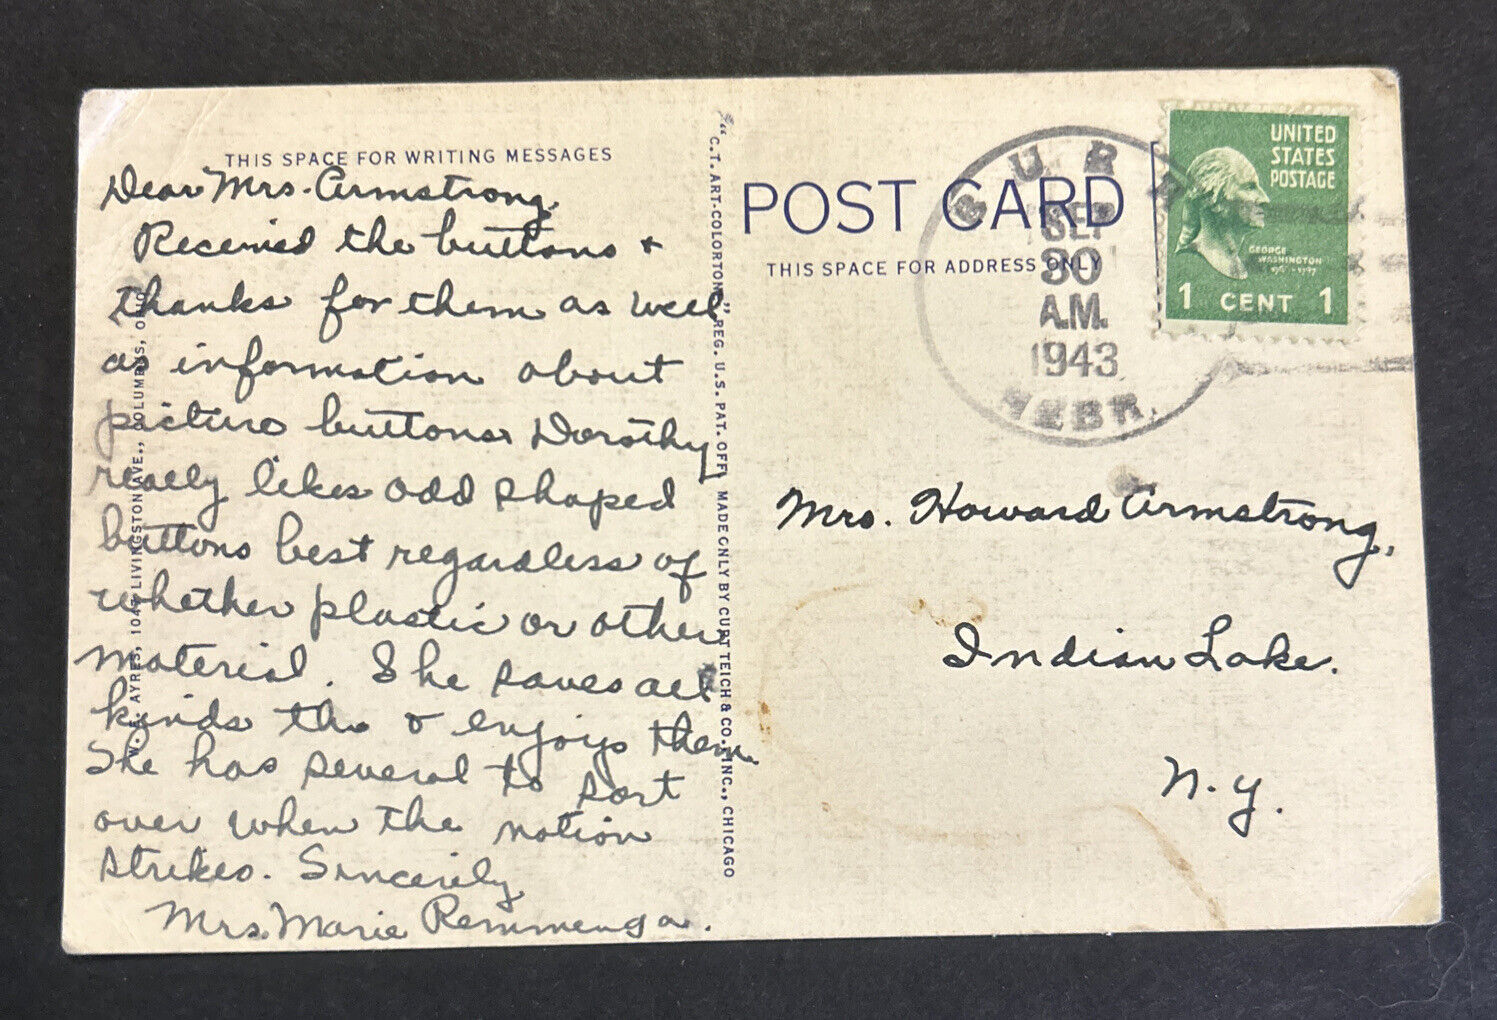 THIS SPACE FOR WRITING MESSAGES
Dear Mrs. Armstrong,
Received the buttons +
thanks for them as well
as information about
picture buttons. Dorothy
really likes odd shaped
buttons best regardless of
whether plastic or other
material. She saves all
kinds tho & enjoys them
She has several to sort
over when the notion
strikes. Sincerely
Mrs. Marie Remmenga.
W. E. AYRES, 1047 LIVINGSTON AVE., COLUMBUS, OHIO
"C.T. ART-COLORTONE" REG. U.S. PAT. OFF. MADE ONLY BY CURT TEICH & CO., INC., CHICAGO
POST CARD
THIS SPACE FOR ADDRESS ONLY
BURR
SEP
30
A.M.
1943
NEBR.
UNITED
STATES
POSTAGE
GEORGE
WASHINGTON
1 CENT 1
Mrs. Howard Armstrong,
Indian Lake.
N. Y.